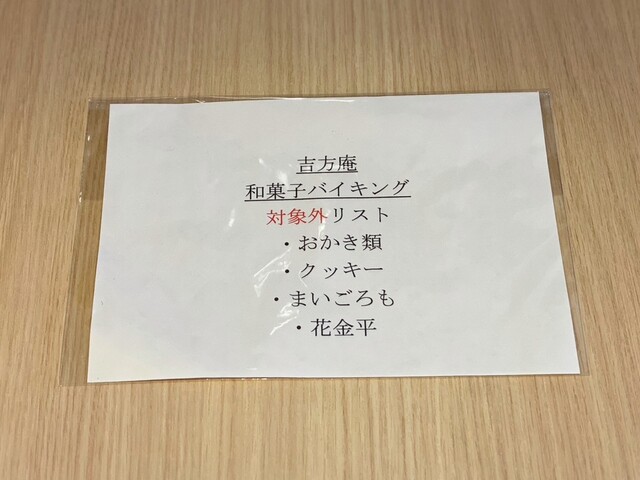 吉方庵
和菓子バイキング
対象外リスト
・おかき類
・クッキー
・まいごろも
・花金平